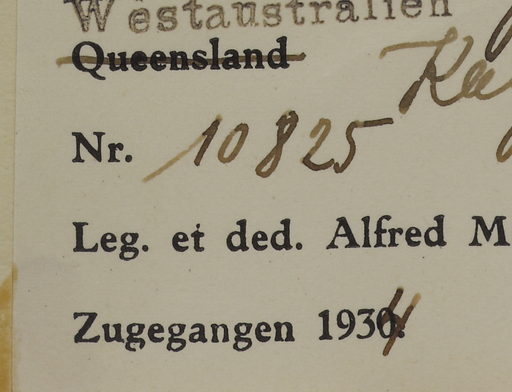 Westaustralien
Queensland
Nr. 10825
Leg. et ded. Alfred M
Zugegangen 1934